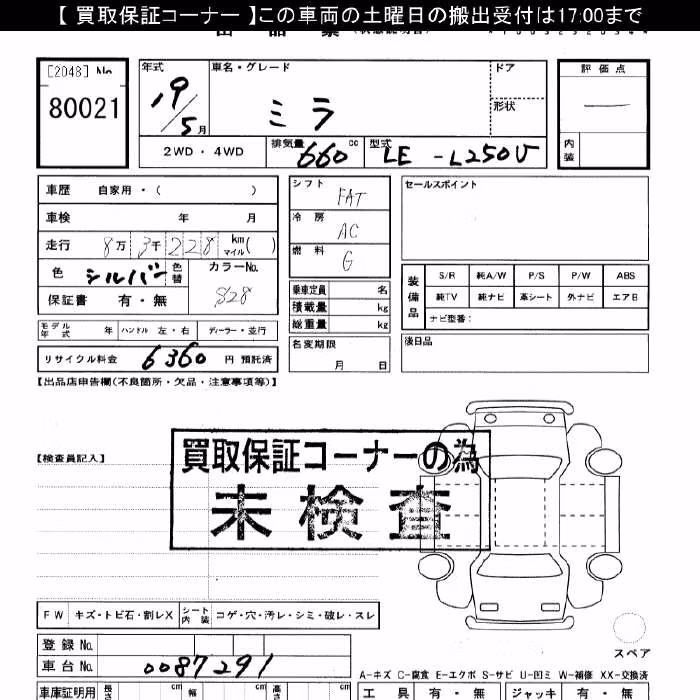 【 買取保証コーナー 】この車両の土曜日の搬出受付は17:00まで
[2048] No.
80021
年式
車名・グレード
ドア
評価点
19/5月
ミラ
形状
2WD・4WD
排気量 660 cc
型式 LE-L250V
内装
車歴 自家用・( )
車検 年 月
走行 8万3千228 km マイル ( )
色 シルバー 色替
カラーNo. S28
保証書 有・無
モデル年式 年 ハンドル 左・右 ディーラー・並行
リサイクル料金 6360 円 預託済
シフト FAT
冷房 AC
燃料 G
乗車定員 名
積載量 kg
総重量 kg
名変期限
月 日
セールスポイント
装備品
S/R 純A/W P/S P/W ABS
純TV 純ナビ 革シート 外ナビ エアB
ナビ型番:
後日品
【出品店申告欄(不良箇所・欠品・注意事項等)】
【検査員記入】
買取保証コーナーの為
未検査
FW キズ・トビ石・割レX シート内装 コゲ・穴・汚レ・シミ・破レ・スレ
登録 No.
車台 No. 0087291
車庫証明用 長さ cm 幅 cm 高さ cm
スペア
A-キズ C-腐食 E-エクボ S-サビ U-凹ミ W-補修 XX-交換済
工具 有・無 ジャッキ 有・無